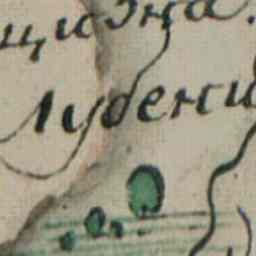 цизна.
Лубени